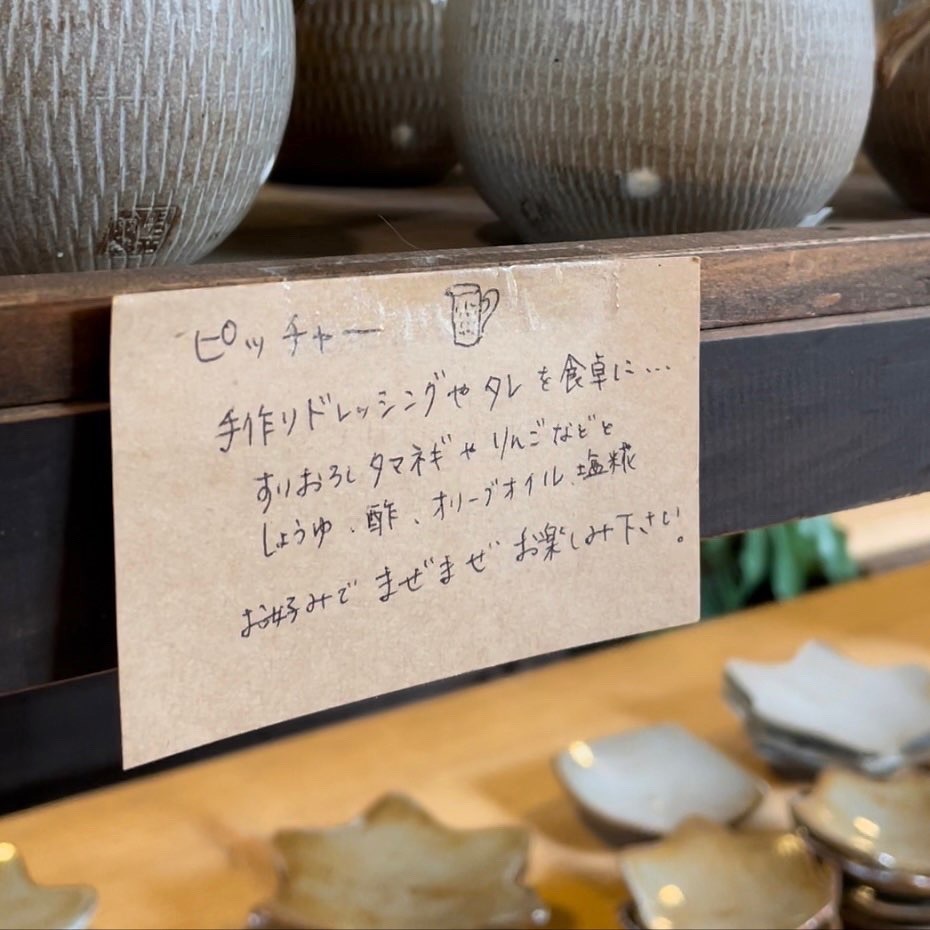 ピッチャー
手作りドレッシングやタレを食卓に…
すりおろしタマネギやりんごなどと
しょうゆ、酢、オリーブオイル、塩糀
お好みでまぜまぜお楽しみ下さい。